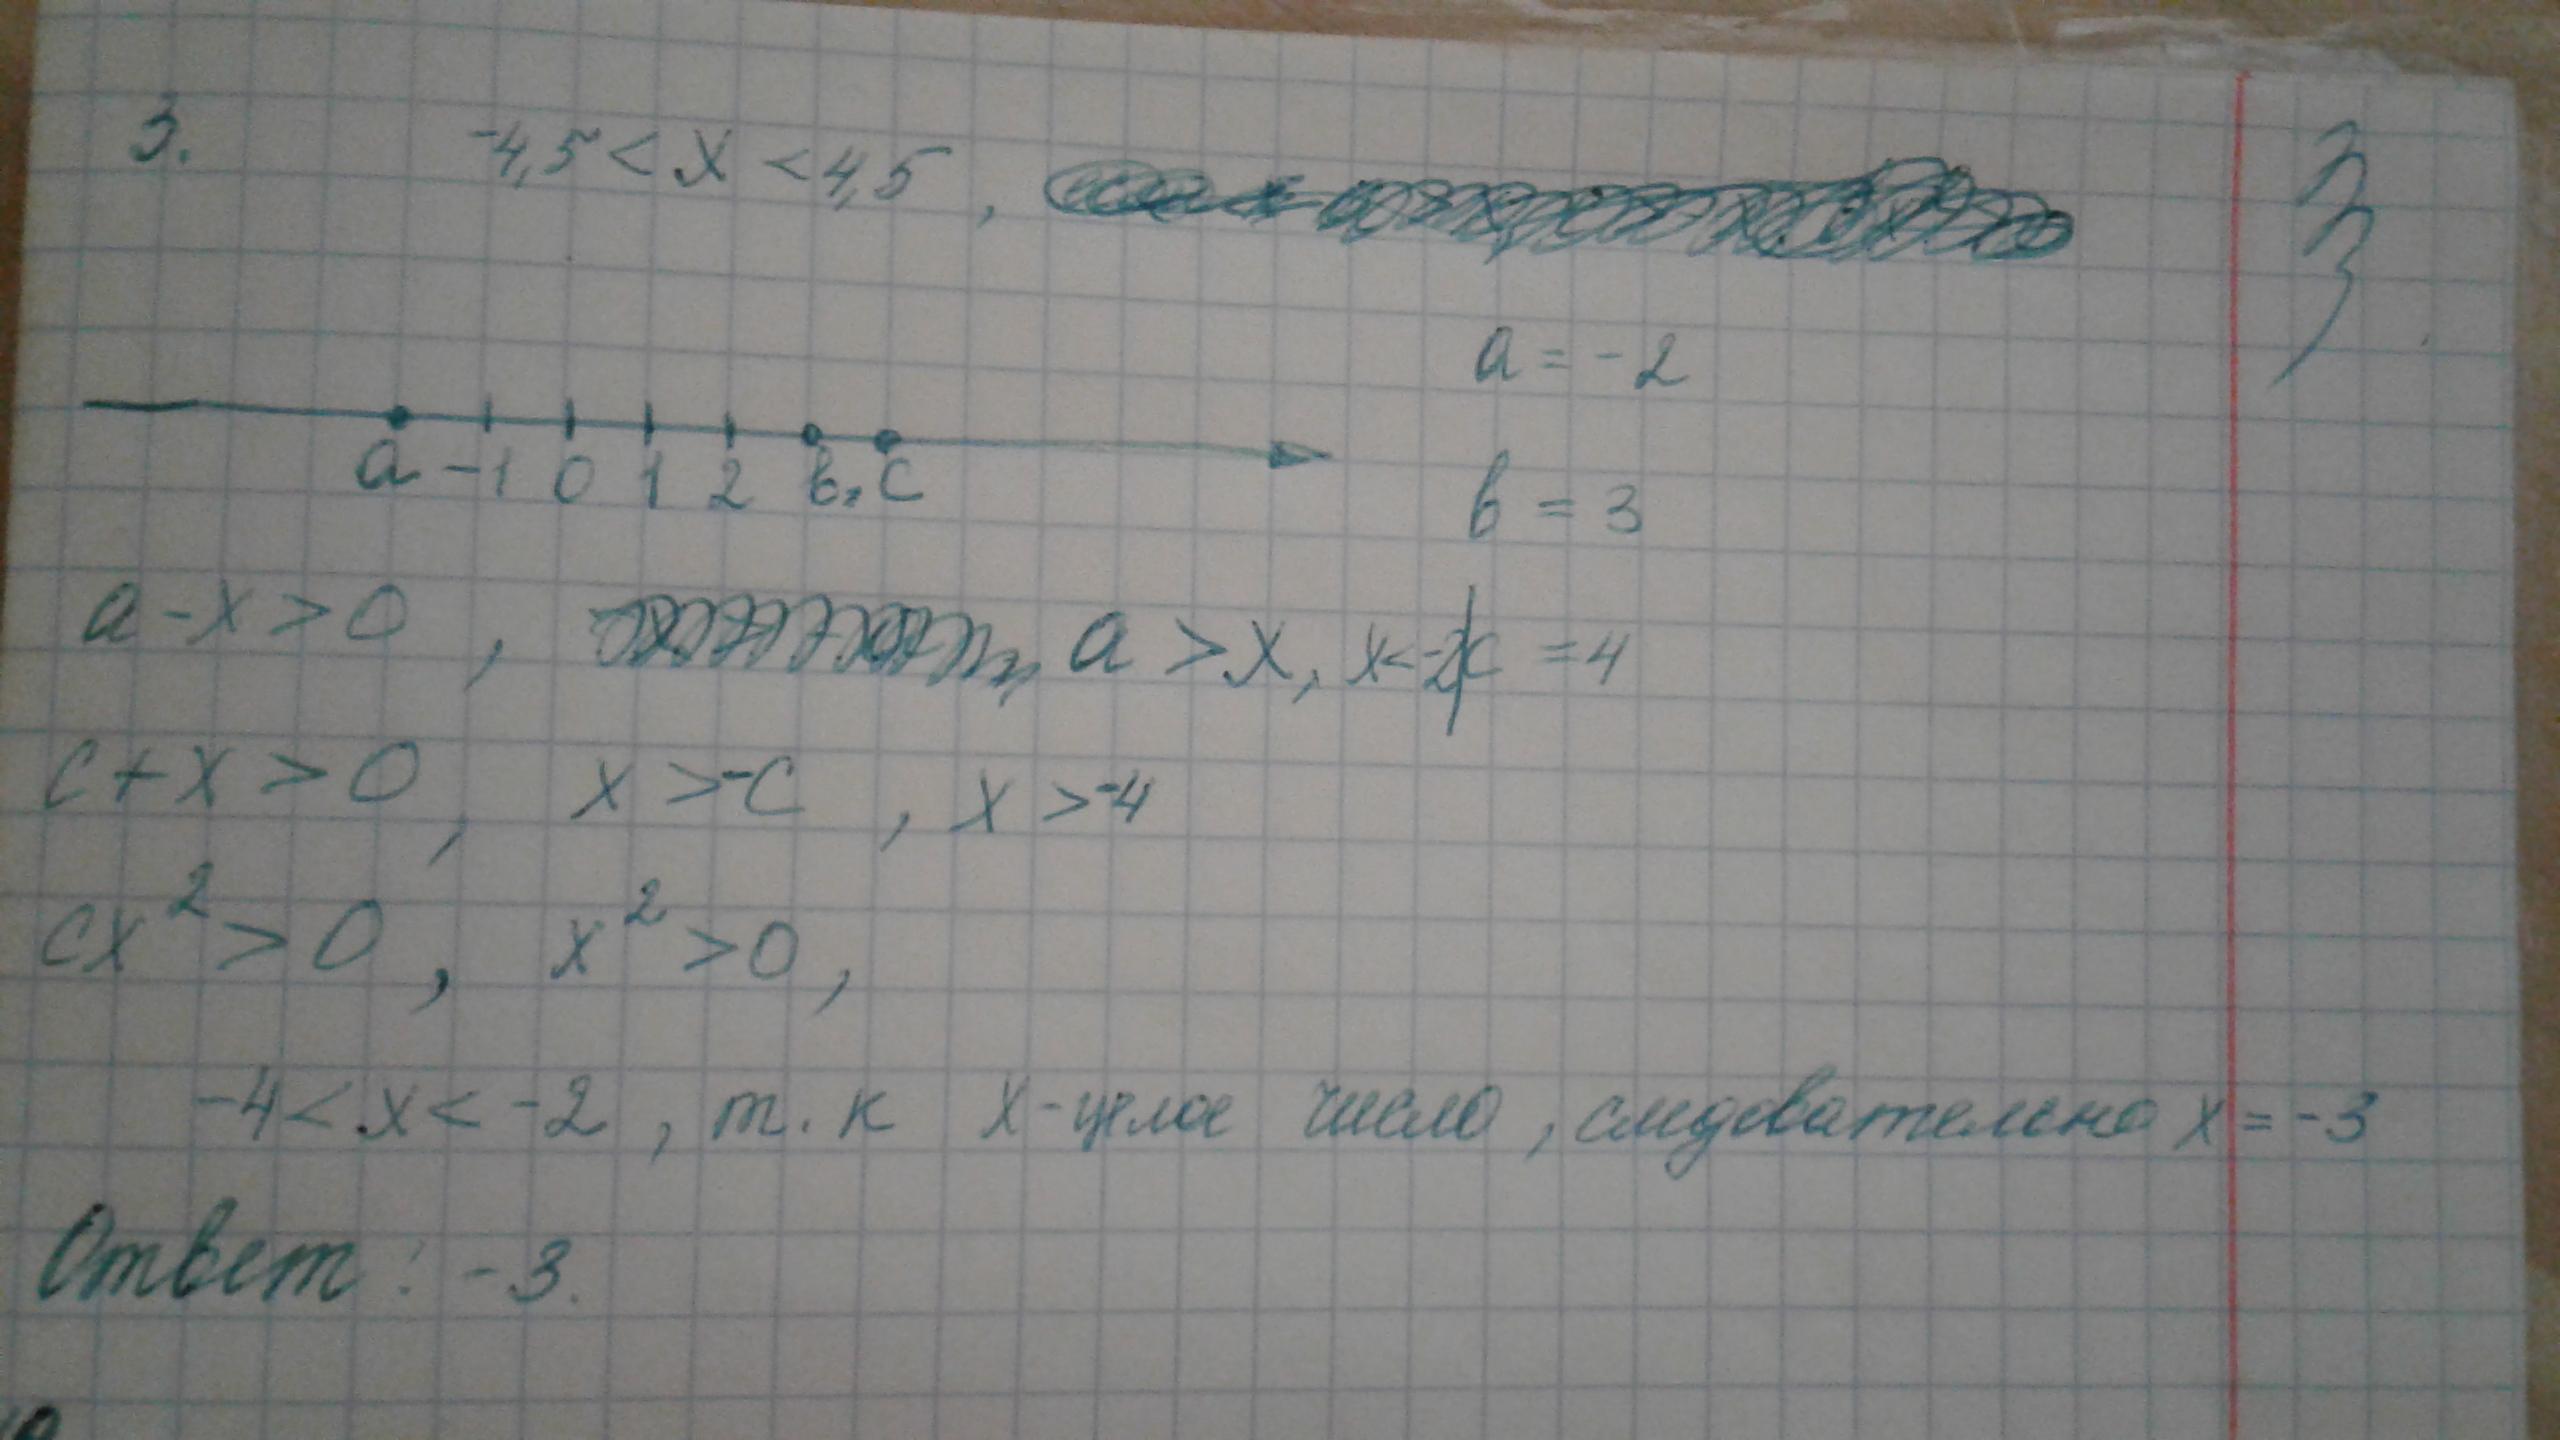 3. -4,5 < x < 4,5 ,
a = -2
a -1 0 1 2 в, c
в = 3
a - x > 0 , a > x, x < -2 | c = 4
c + x > 0 , x > -c , x > -4
cx² > 0 , x² > 0 ,
-4 < x < -2 , т. к x - целое число , следовательно x = -3
Ответ: -3.